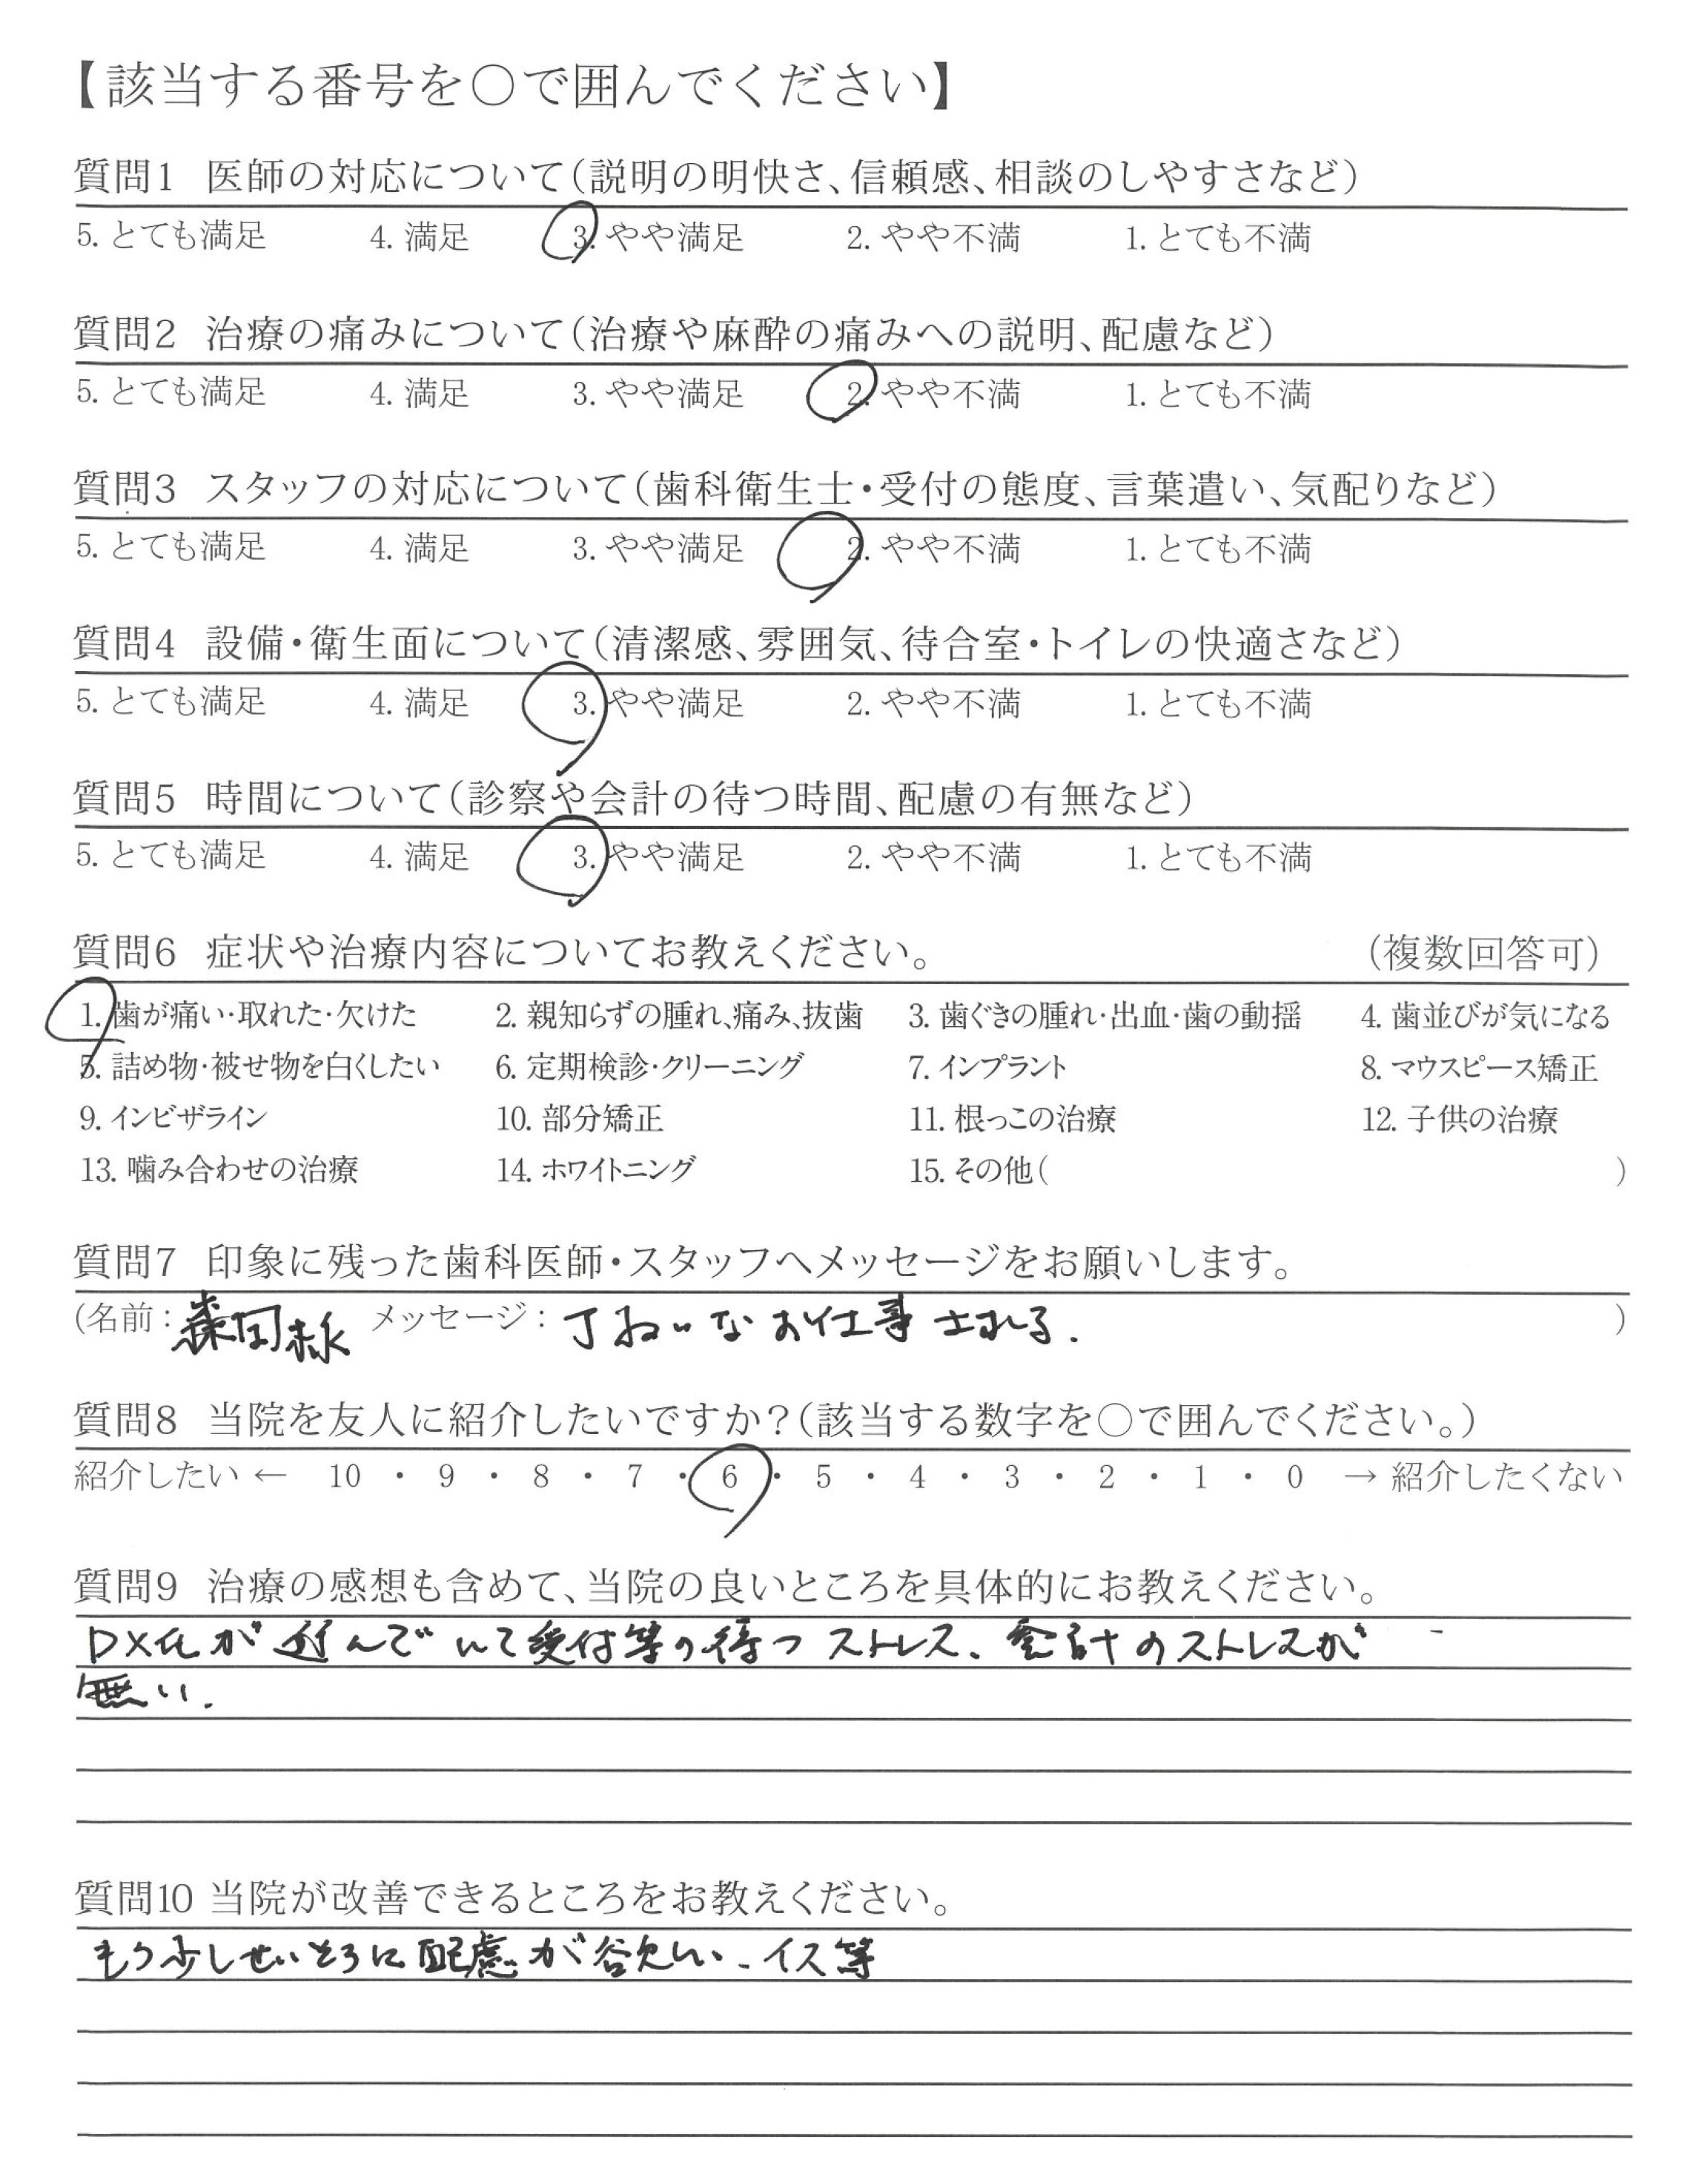 【該当する番号を○で囲んでください】
質問1 医師の対応について（説明の明快さ、信頼感、相談のしやすさなど）
5. とても満足 4. 満足 3. やや満足 2. やや不満 1. とても不満
質問2 治療の痛みについて（治療や麻酔の痛みへの説明、配慮など）
5. とても満足 4. 満足 3. やや満足 2. やや不満 1. とても不満
質問3 スタッフの対応について（歯科衛生士・受付の態度、言葉遣い、気配りなど）
5. とても満足 4. 満足 3. やや満足 2. やや不満 1. とても不満
質問4 設備・衛生面について（清潔感、雰囲気、待合室・トイレの快適さなど）
5. とても満足 4. 満足 3. やや満足 2. やや不満 1. とても不満
質問5 時間について（診察や会計の待つ時間、配慮の有無など）
5. とても満足 4. 満足 3. やや満足 2. やや不満 1. とても不満
質問6 症状や治療内容についてお教えください。 （複数回答可）
1. 歯が痛い・取れた・欠けた 2. 親知らずの腫れ、痛み、抜歯 3. 歯ぐきの腫れ・出血・歯の動揺 4. 歯並びが気になる
5. 詰め物・被せ物を白くしたい 6. 定期検診・クリーニング 7. インプラント 8. マウスピース矯正
9. インビザライン 10. 部分矯正 11. 根っこの治療 12. 子供の治療
13. 噛み合わせの治療 14. ホワイトニング 15. その他（ ）
質問7 印象に残った歯科医師・スタッフへメッセージをお願いします。
（名前：森岡様 メッセージ：丁ねいなお仕事される. ）
質問8 当院を友人に紹介したいですか？（該当する数字を○で囲んでください。）
紹介したい ← 10 ・ 9 ・ 8 ・ 7 ・ 6 ・ 5 ・ 4 ・ 3 ・ 2 ・ 1 ・ 0 → 紹介したくない
質問9 治療の感想も含めて、当院の良いところを具体的にお教えください。
DX化が進んでいて受付等の待つストレス、会計のストレスが
無い.
質問10 当院が改善できるところをお教えください。
もう少しせいとうに配慮が欲しい、イス等